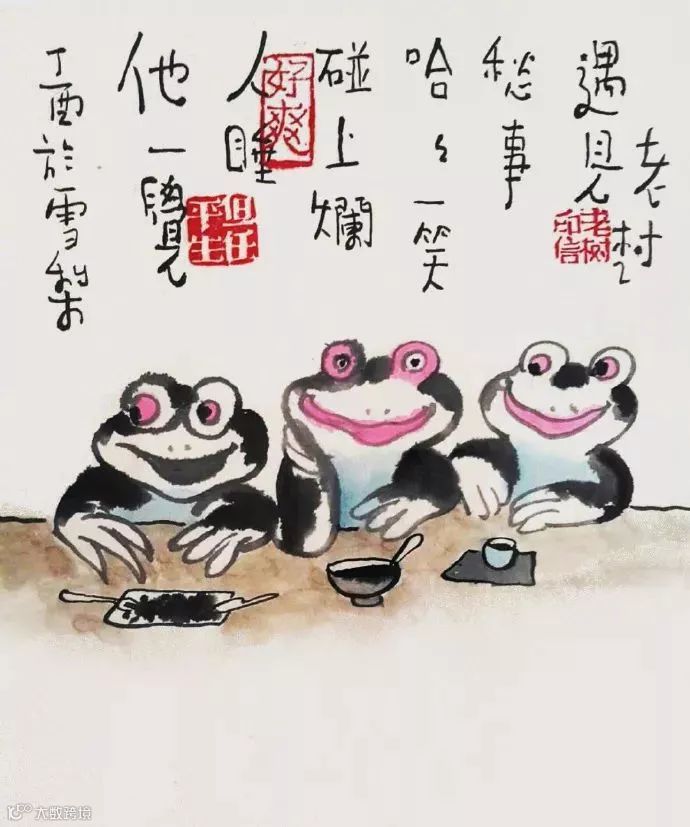 老村
遇見
愁事
哈々一笑
碰上爛
人睡
他一覺
丁酉於雪梨
老树印信
好爽
但任平生
大数跨境